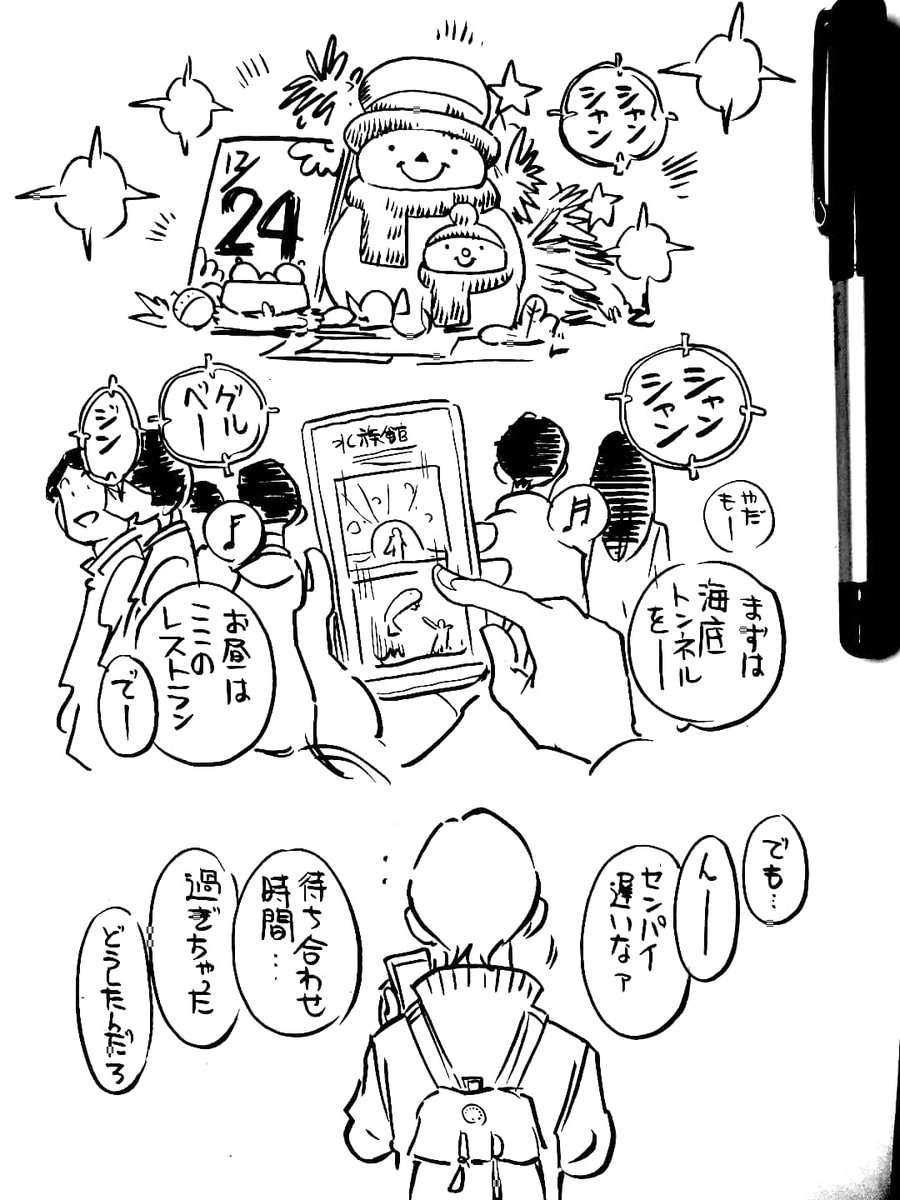 12/24
シャン
シャン
シャン
シャン
ジン
グル
ベー
水族館
やだ
もー
まずは
海底
トンネル
をー
お昼は
ここの
レストラン
でー
でも…
んー
センパイ
遅いなァ
待ち合わせ
時間…
過ぎちゃった
どうしたんだろ